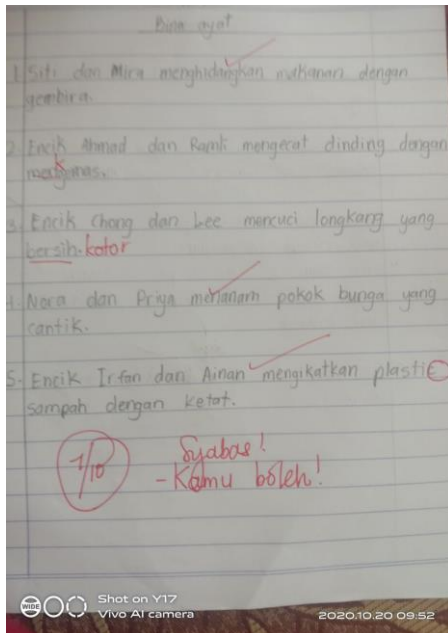 Bina ayat
1. Siti dan Mira menghidangkan makanan dengan
gembira.
2. Encik Ahmad dan Ramli mengecat dinding dengan
kemas.
3. Encik Chong dan Lee mencuci longkang yang
bersih. kotor
4. Nora dan Priya menanam pokok bunga yang
cantik.
5. Encik Irfan dan Ainan mengikatkan plastic
sampah dengan ketat.
7/10
Syabas!
- Kamu boleh!
WIDE
Shot on Y17
Vivo AI camera
2020.10.20 09:52